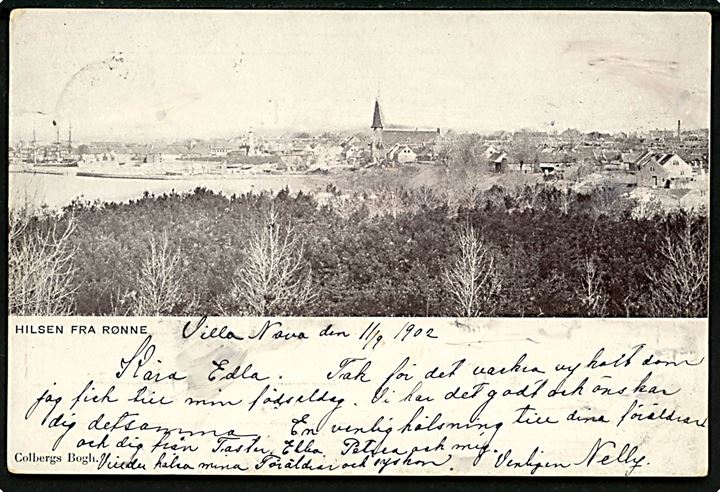 HILSEN FRA RØNNE
Villa Nova den 11/9 1902
Kära Edla. Tak för det vackra vykort som
jag fick till min födselsdag. Vi har det godt och önskar
dig detsamma. En venlig hälsning till dina föräldrar
och dig från Taster, Ella, Petrea och mig.
hälsa mina Föräldrar och syskon. Venligen Nelly.
Colbergs Bogh.